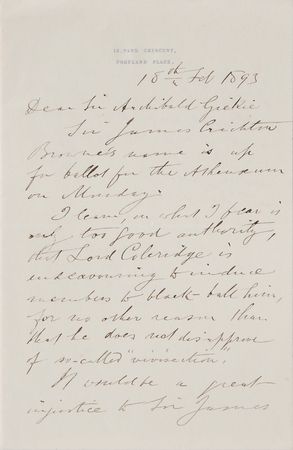 PARK CRESCENT,
PORTLAND PLACE.
18th Feb 1893
Dear Sir Archibald Geikie
Sir James Crichton
Browne's name is up
for ballot for the Athenæum
on Monday.
I learn, on what I fear is
only too good authority,
that Lord Coleridge is
endeavouring to induce
members to black-ball him,
for no other reason than
that he does not disapprove
of so-called "vivisection".
It would be a great
injustice to Sir James